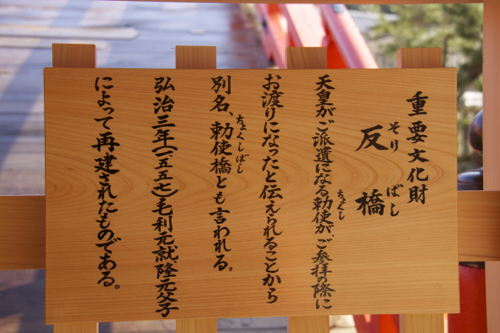 重要文化財
反橋
そりばし
天皇がご派遣になる勅使が、ご参拝の際に
ちょくし
お渡りになったと伝えられることから
別名、勅使橋とも言われる。
ちょくしばし
弘治三年(一五五七)毛利元就隆元父子
によって再建されたものである。